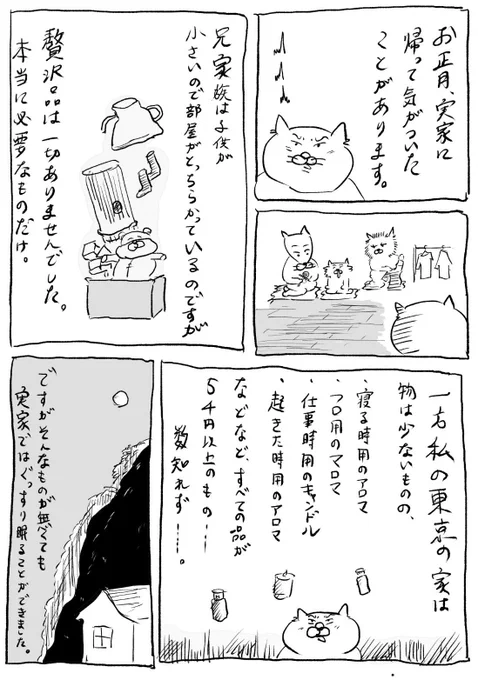 お正月、実家に
帰って気がついた
ことがあります。
兄家族は子供が
小さいので部屋がとっちらかっているのですが
贅沢品は一切ありませんでした。
本当に必要なものだけ。
一方私の東京の家は
物は少ないものの、
・寝る時用のアロマ
・フロ用のアロマ
・仕事時用のキャンドル
・起きた時用のアロマ
などなど、すべての品が
5千円以上のもの…
数知れず……。
ですがそんなものが無くても
実家ではぐっすり眠ることができました。